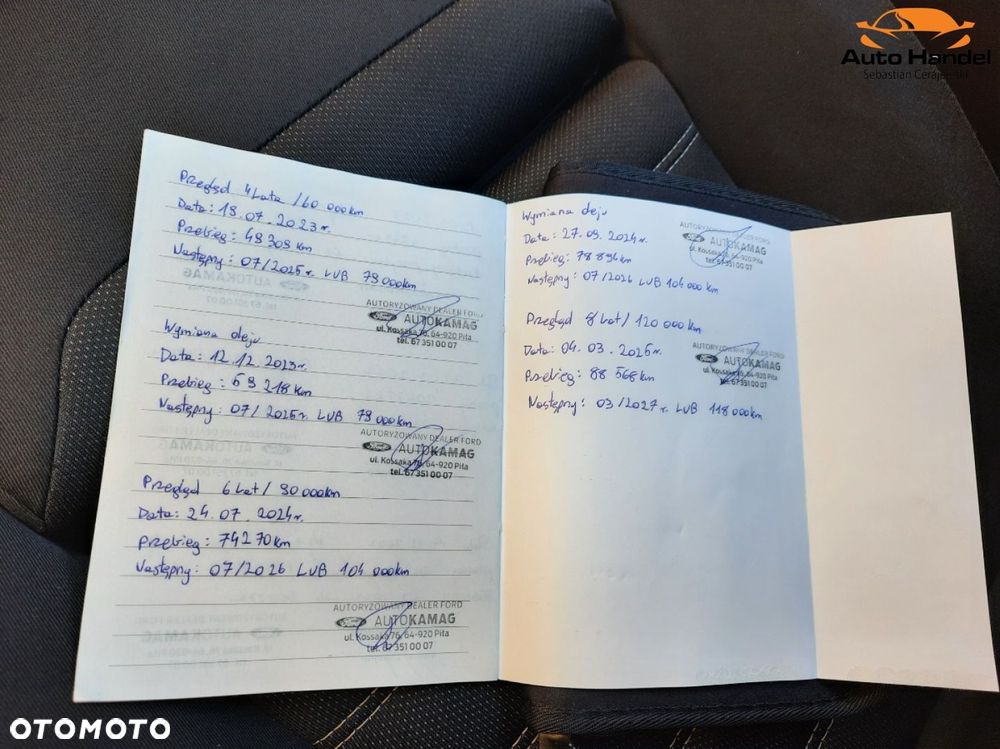 Auto Handel
Sebastian Cerajewski
Przegląd 4 Lata / 60 000km
Data: 18.07.2023r.
Przebieg: 49 309 km
Następny: 07/2025r. LUB 79 000km
AUTORYZOWANY DEALER FORD
Ford AUTOKAMAG
ul. Kossaka 76, 64-920 Piła
tel. 67 351 00 07
Wymiana oleju
Data: 12.12.2023r.
Przebieg: 59 218 km
Następny: 07/2025r. LUB 79 000km
AUTORYZOWANY DEALER FORD
Ford AUTOKAMAG
ul. Kossaka 76, 64-920 Piła
tel. 67 351 00 07
Przegląd 6 Lat / 90 000km
Data: 24.07.2024r.
Przebieg: 74270 km
Następny: 07/2026 LUB 104 000km
AUTORYZOWANY DEALER FORD
Ford AUTOKAMAG
ul. Kossaka 76, 64-920 Piła
tel. 67 351 00 07
Wymiana oleju
Data: 27.09.2024r.
Przebieg: 78 894 km
Następny: 07/2026 LUB 104 000 km
AUTORYZOWANY DEALER FORD
Ford AUTOKAMAG
ul. Kossaka 76, 64-920 Piła
tel. 67 351 00 07
Przegląd 8 Lat / 120 000 km
Data: 04.03.2025r.
Przebieg: 88 568 km
Następny: 03/2027r. LUB 118 000km
AUTORYZOWANY DEALER FORD
Ford AUTOKAMAG
ul. Kossaka 76, 64-920 Piła
tel. 67 351 00 07
OTOMOTO